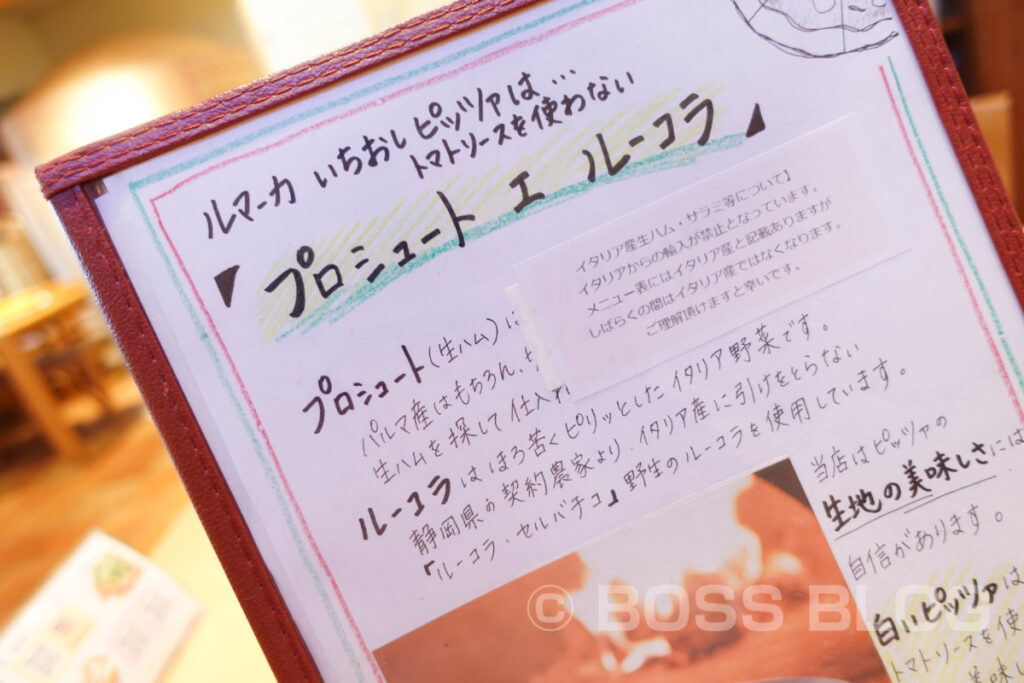 ルマーカ いちおしピッツァは…
トマトソースを使わない
『プロシュート エ ルーコラ』
【イタリア産生ハム・サラミ等について】
イタリアからの輸入が禁止となっています。
メニュー表にはイタリア産と記載ありますが
しばらくの間はイタリア産ではなくなります。
ご理解頂けますと幸いです。
プロシュート(生ハム)は
パルマ産はもちろん、
生ハムを探して仕入れ
ルーコラはほろ苦くピリッとしたイタリア野菜です。
静岡県の契約農家より、イタリア産に引けをとらない
『ルーコラ・セルバチコ』野生のルーコラを使用しています。
当店はピッツァの
生地の美味しさには
自信があります。
白いピッツァは
トマトソースを使
美味し
© BOSS BLOG